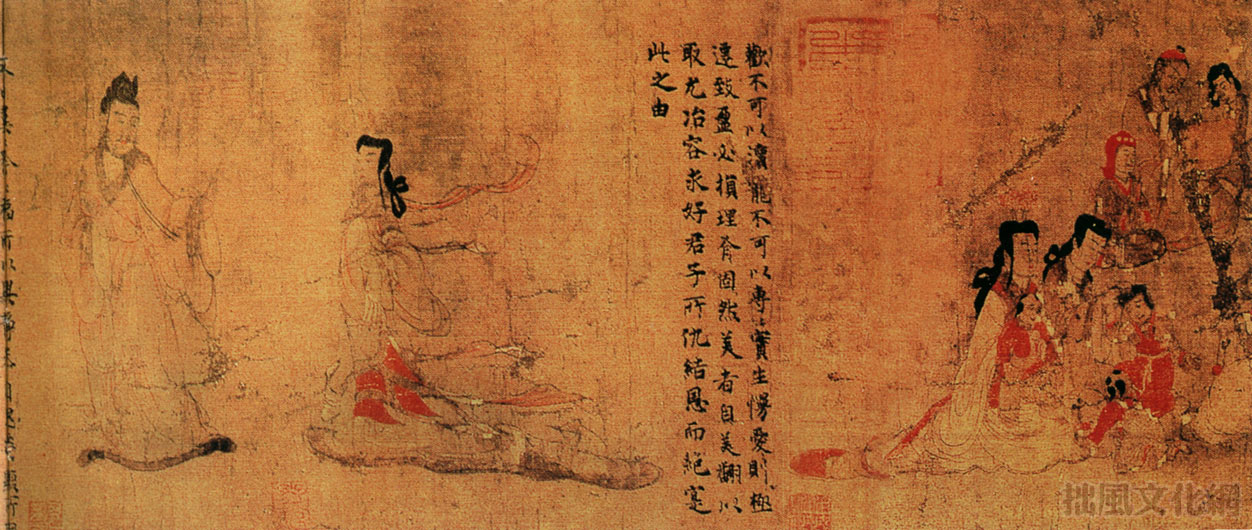 歡不可以瀆寵不可以專〻實生慢愛則極
遷致盈必損理有固然美者自美翩以
取尤冶容求好君子所仇結恩而絕寔
此之由
福所以興靖恭自思榮顯所
拙風文化網